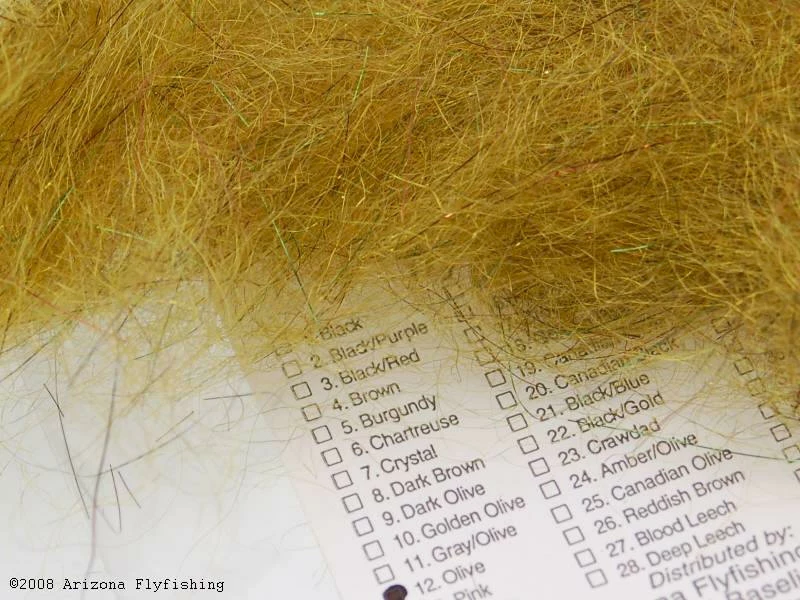 Black
2. Black/Purple
3. Black/Red
4. Brown
5. Burgundy
6. Chartreuse
7. Crystal
8. Dark Brown
9. Dark Olive
10. Golden Olive
11. Gray/Olive
12. Olive
Pink
19.
20. Canadian Black
21. Black/Blue
22. Black/Gold
23. Crawdad
24. Amber/Olive
25. Canadian Olive
26. Reddish Brown
27. Blood Leech
28. Deep Leech
Distributed by:
Flyfishing
Baseline
©2008 Arizona Flyfishing